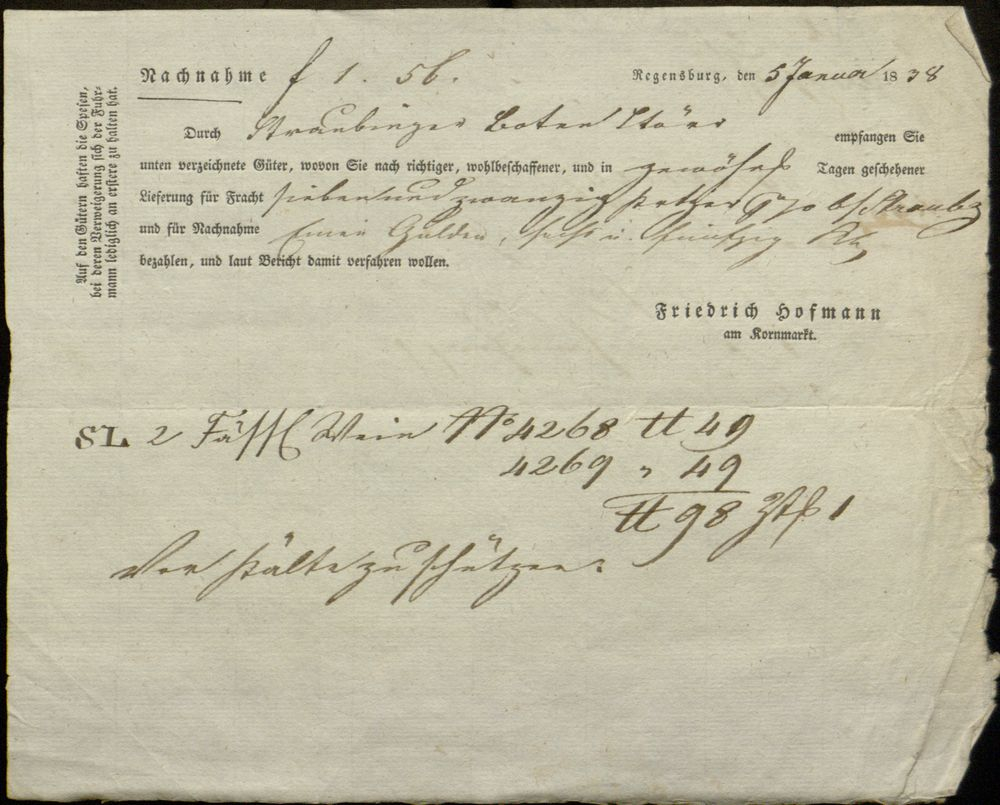 Auf den Gütern haften die Spesen,
bei deren Verweigerung sich der Fuhr-
mann lediglich an erstere zu halten hat.
Nachnahme f 1. 56.
Regensburg, den 5 Januar 1838
Durch Straubinger Boten Stöer empfangen Sie
unten verzeichnete Güter, wovon Sie nach richtiger, wohlbeschaffener, und in gewöhnl Tagen geschehener
Lieferung für Fracht sieben und zwanzig Kreuzer
und für Nachnahme Einen Gulden, sechs u. fünfzig Kr
bezahlen, und laut Bericht damit verfahren wollen.
Friedrich Hofmann
am Kornmarkt.
SL 2 Fässl Wein No 4268 ℔ 49
4269 " 49
℔ 98 1
Vor Kälte zu schützen.